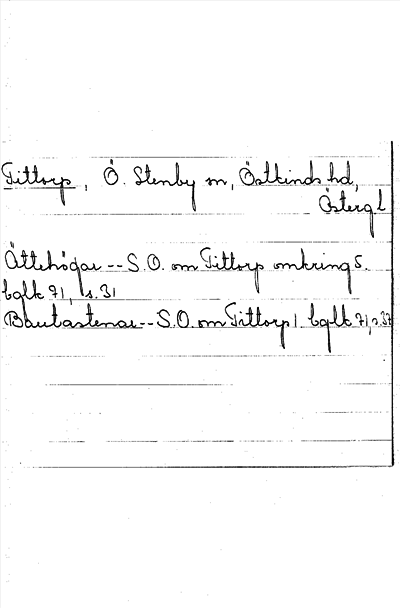 Tittorp, Ö. Stenby sn, Östkinds hd,
Östergl
Ättehögar -- S.O. om Tittorp omkring 5.
bglk 71, s. 31
Bautastenar -- S.O. om Tittorp 1 bglk 71, s. 37